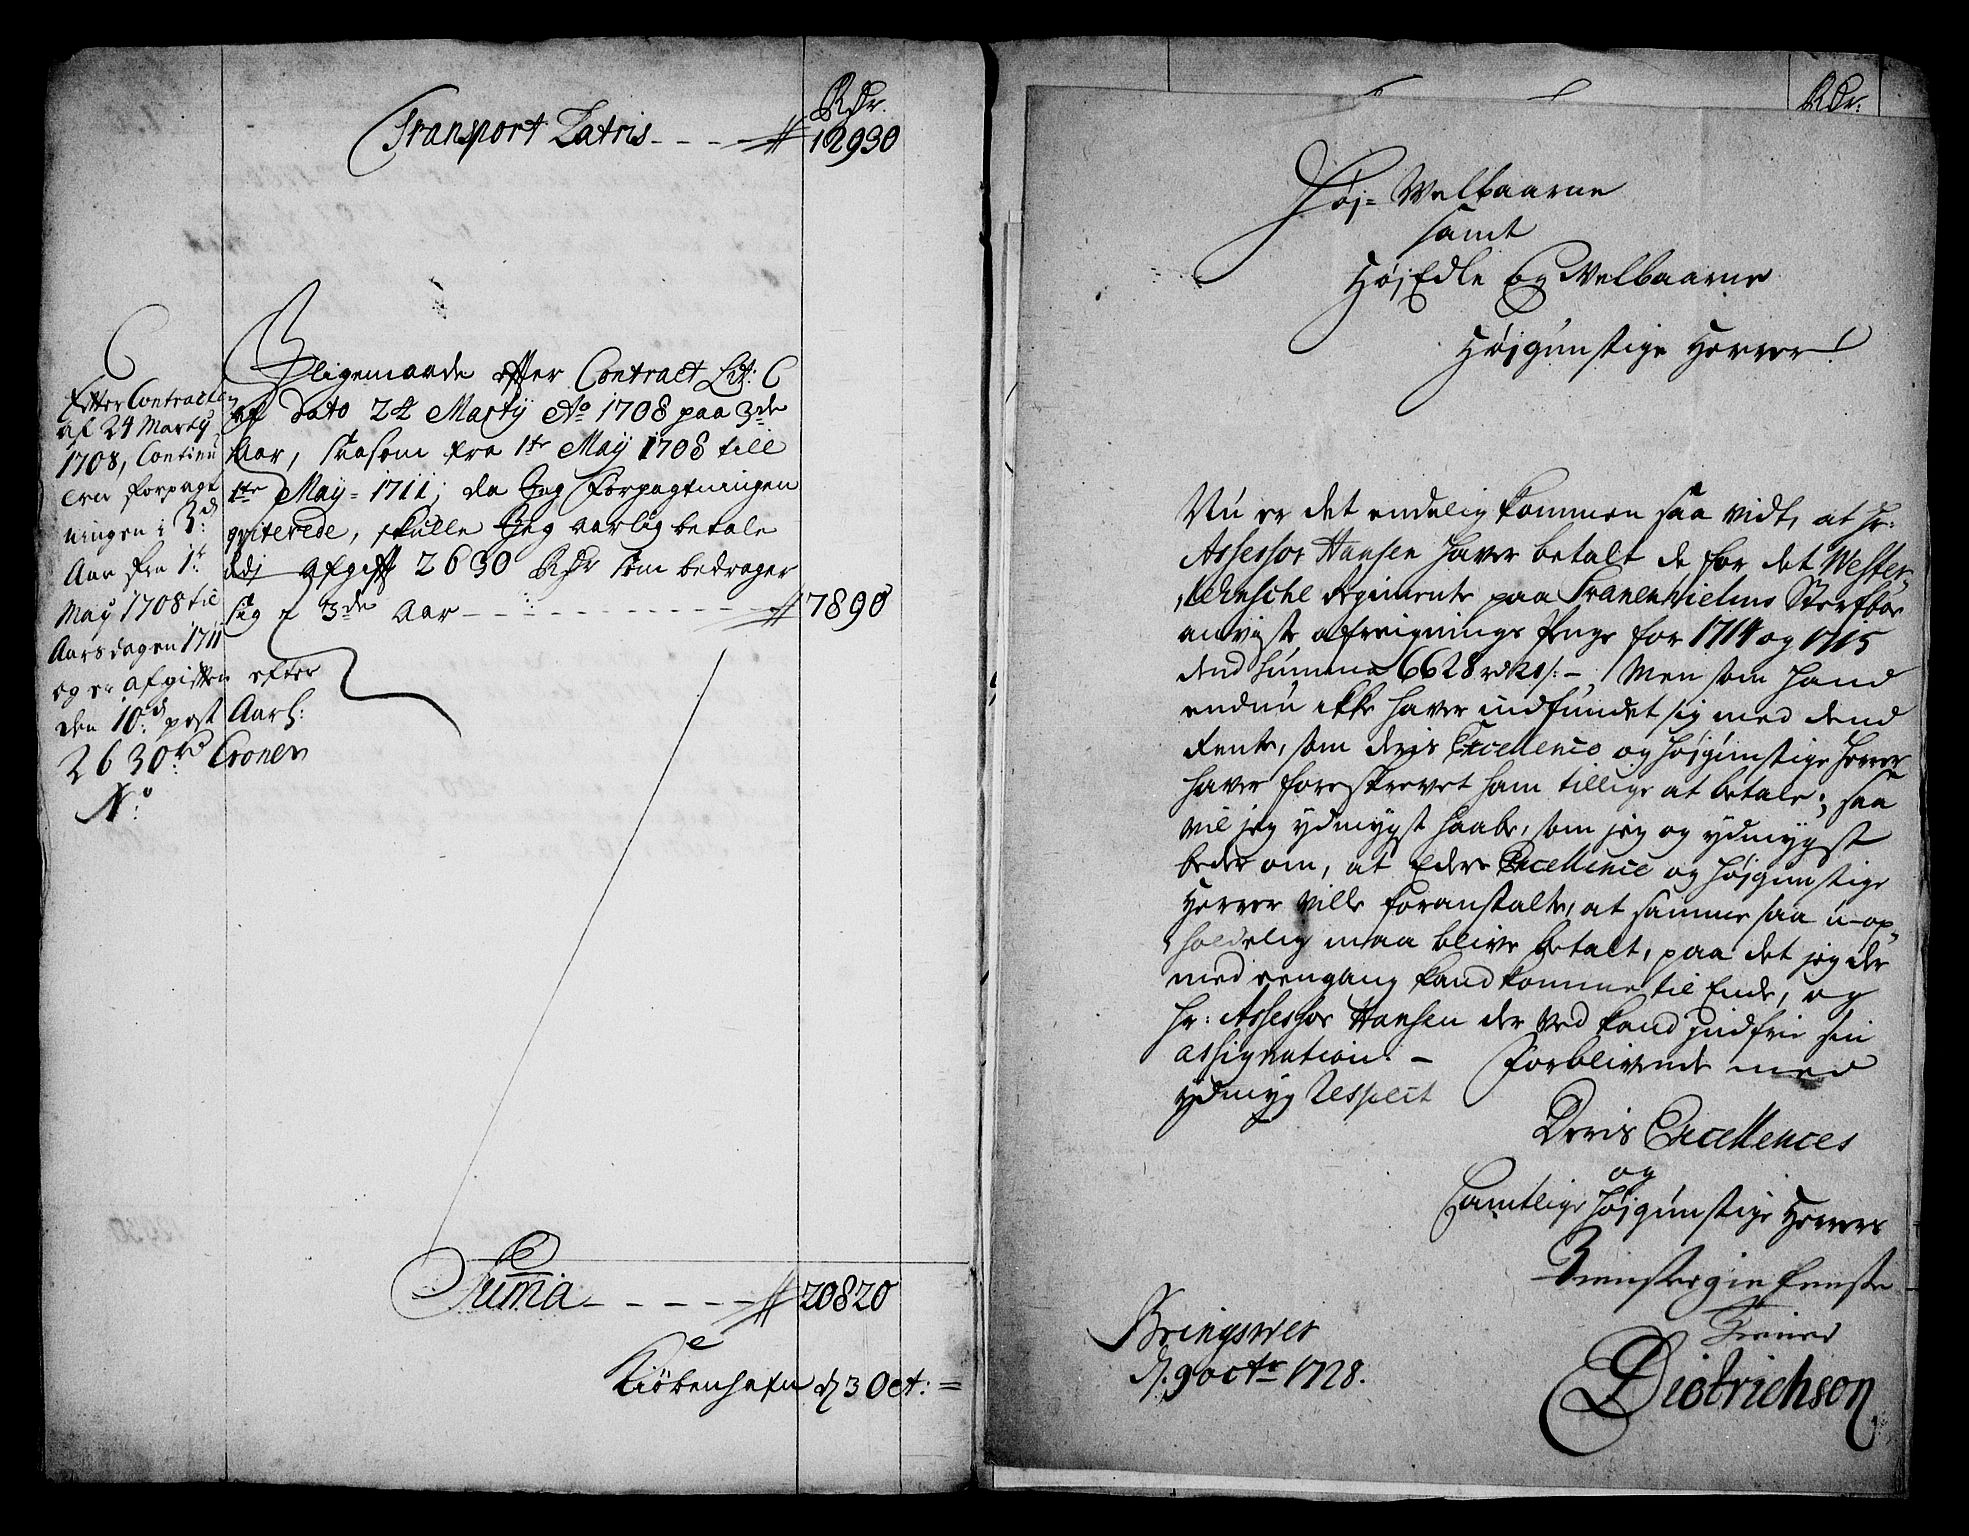 RDr.
Transport Latris - - - - # 12930
Efter Contracten
af 24 Marty
1708, Continu
eren forpagt
ningen i 3de
Aar fra 1te
May 1708 til
Aarsdagen 1711
og er afgiften efter
den 10de post Aarl:
2630 rd Cronen
No
Sligemaade effter Contract Lit: C
af Dato 24 Marty Ao 1708 paa 3de
Aar, saasom fra 1te May 1708 till
1te May = 1711; da Jeg Forpagtningen
qviterede, skulle Jeg aarlig betale
udj Afgifft 2630 RDr som bedrager
sig i 3de Aar - - - - - - - # 7890
Summa - - - - - # 20820
Kiöbenhafn d 3 Oct: =
RDr.
Høj = Welbaarne
samt
HøjEdle og Welbaarne
Højgunstige Herrer!
Nu er det endelig kommen saa vidt, at Hr:
Assessor Hansen haver betalt de for det Wester-
lehnsche Regimente paa Tranenhielms Sterfboe
anviste afreignings penge for 1714 og 1715
dend Summa 6628 rd 20 s: - Men som hand
endnu ikke haver indfundet sig med dend
Rente, som deris Excellence og Højgunstige Herrer
haver foreskrevet ham tillige at betale; saa
vil jeg ydmygst haabe, som jeg og ydmygst
beder om, at Eders Excellence og Højgunstige
Herrer ville foranstalte, at samme saa u-op-
holdelig maa blive betalt, paa det jeg der
med eengang kand komme til Ende, og
Hr: Assessor Hansen der ved kand indfrie sin
assignation. - Forblivende med
ydmyg Respect
Deris Excellences
og
Samtlige Højgunstige Herrers
Tienstergivenste
Tiener
Dietrichson
Bringsver
d. 9 octr 1728.